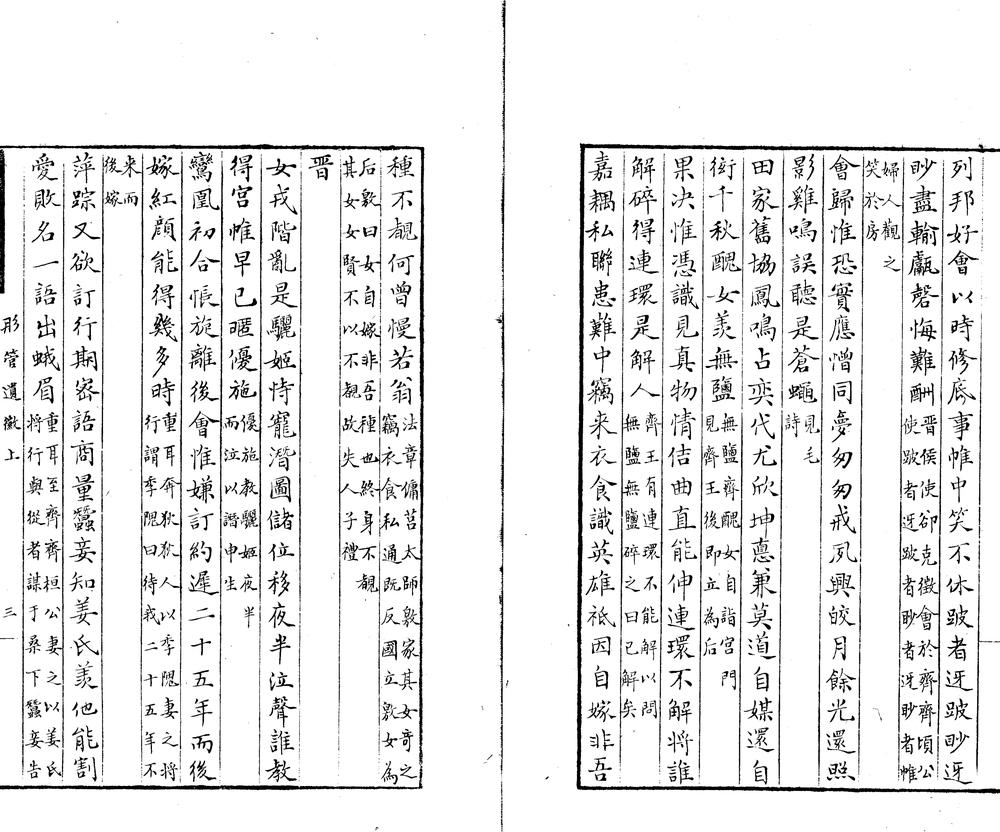 列邦好會以時修底事帷中笑不休跛者迓跛眇迓
眇盡輸臝磬悔難酬晋侯使卻克徵會於齊齊頃公
使跛者迓跛者眇者迓眇者帷
婦人觀之
笑於房
會歸惟恐實應憎同夢匆匆戒夙興皎月餘光還照
影雞鳴誤聽是蒼蠅見毛
詩
田家舊協鳳鳴占奕代尤欣坤悳兼莫道自媒還自
衒千秋醜女羨無鹽無鹽齊醜女自詣宮門
見齊王後即立為后
果决惟憑識見真物情佶曲直能伸連環不解將誰
解碎得連環是解人齊王有連環不能解以問
無鹽無鹽碎之曰已解矣
嘉耦私聯患難中竊来衣食識英雄祗因自嫁非吾
種不覩何曾慢若翁法章傭莒太師敫家其女奇之
竊衣食私通既反國立敫女為
后敫曰女自嫁非吾種也終身不覩
其女女賢不以不覩故失人子禮
晋
女戎階亂是驪姬恃寵潛圖儲位移夜半泣聲誰教
得宮帷早已暱優施優施教驪姬夜半
而泣以譖申生
鸞凰初合悵旋離後會惟嫌訂約遲二十五年而後
嫁紅顔能得幾多時重耳奔狄狄人以季隗妻之將
行謂季隗曰待我二十五年不
来而
後嫁
萍踪又欲訂行期密語商量蠶妾知姜氏羨他能割
愛敗名一語出蛾眉重耳至齊齊桓公妻之以姜氏
將行與從者謀于桑下蠶妾告
彤管遺徽上
三